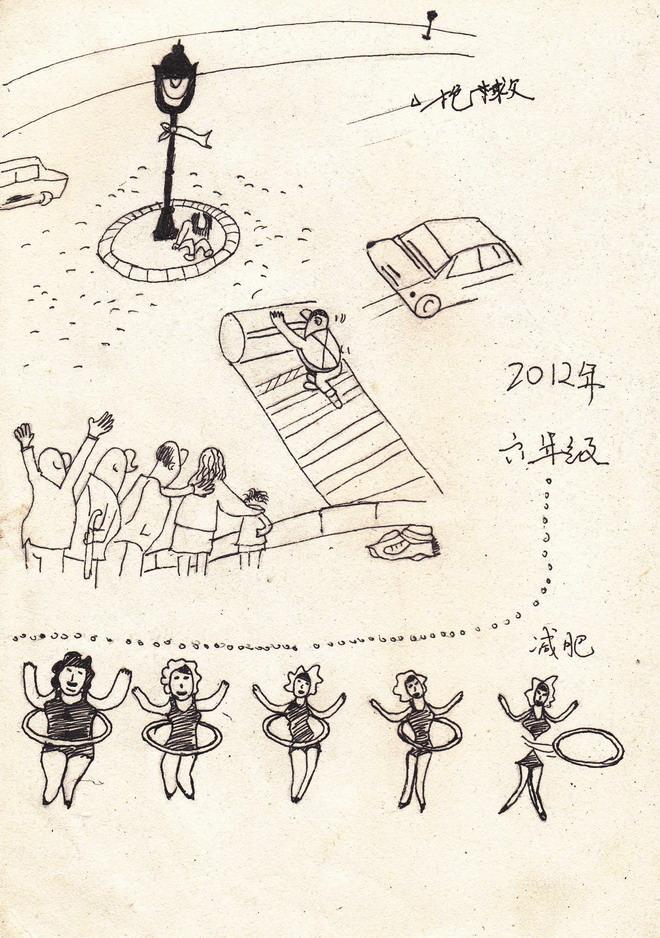 拯救
2012年
六年级
减肥